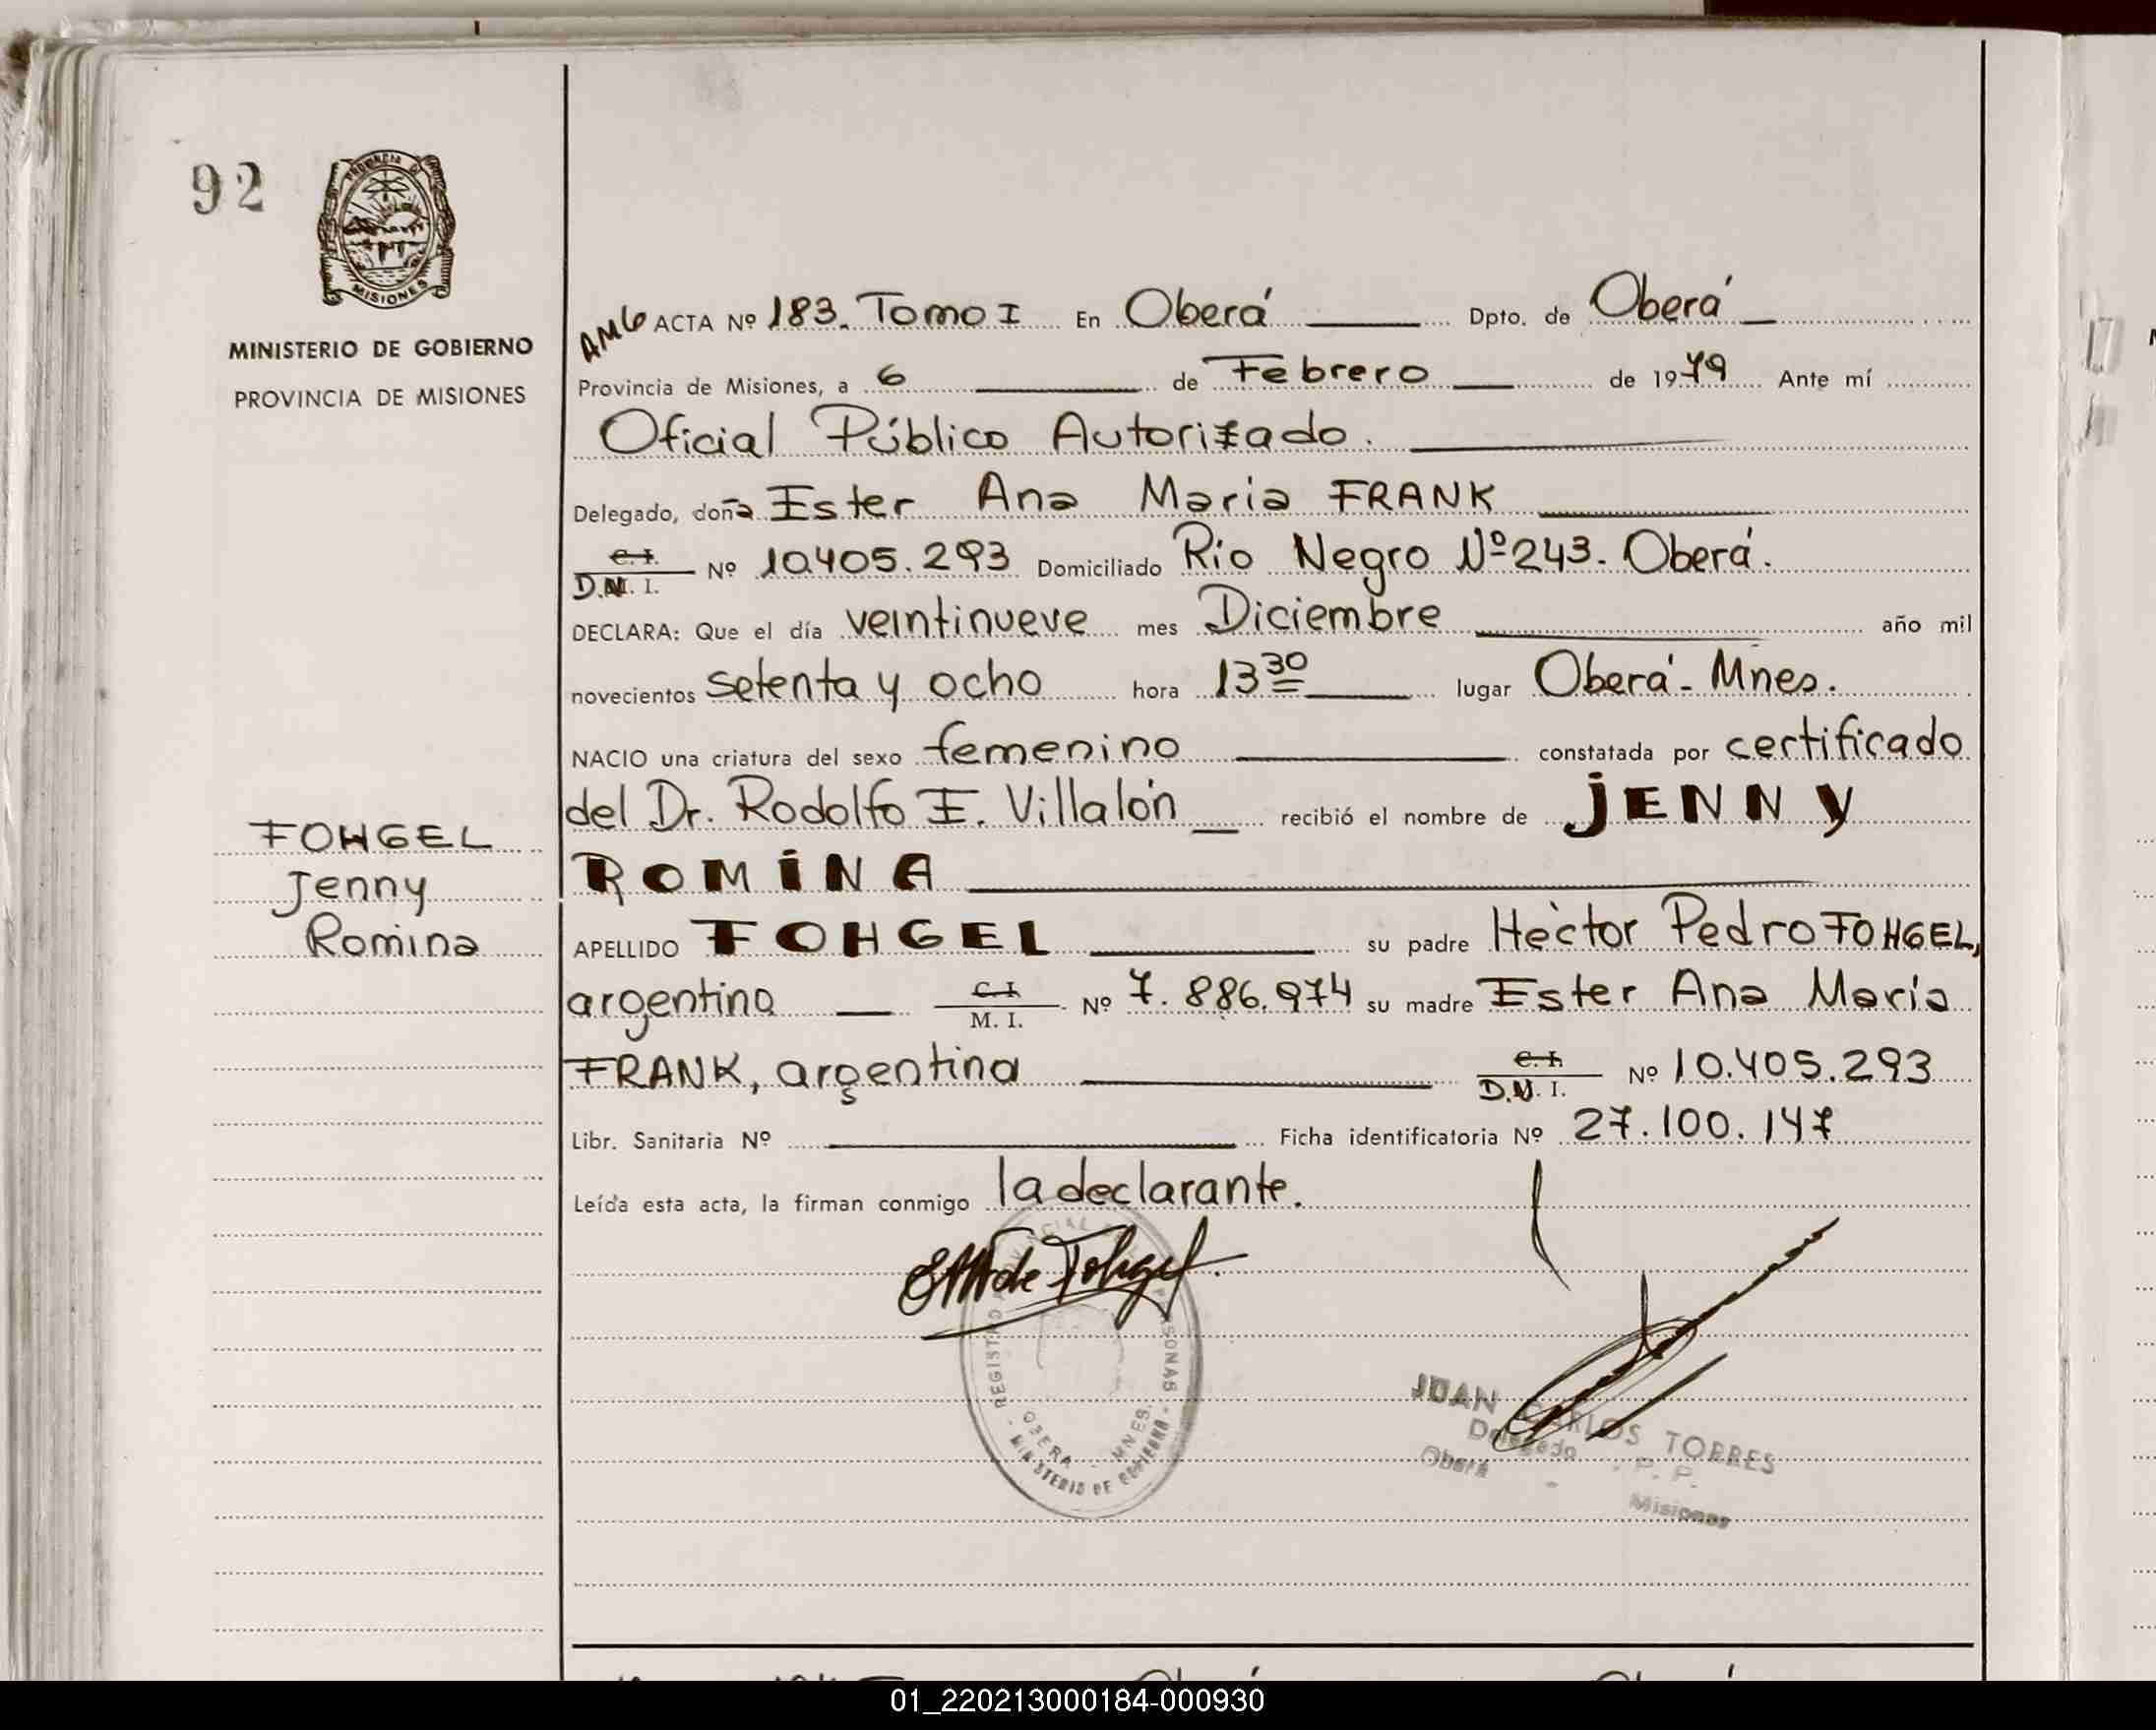 92
PROVINCIA D
MISIONES
MINISTERIO DE GOBIERNO
PROVINCIA DE MISIONES
FOHGEL
Jenny
Romina
AMG ACTA Nº 183. Tomo I En Oberá Dpto. de Oberá
Provincia de Misiones, a 6 de Febrero de 1979 Ante mí
Oficial Público Autorizado.
Delegado, doña Ester Ana Maria FRANK
C. I.
D.N. I. Nº 10.405.293 Domiciliado Río Negro Nº 243. Oberá.
DECLARA: Que el día veintinueve mes Diciembre año mil
novecientos setenta y ocho hora 13 30 lugar Oberá - Mnes.
NACIO una criatura del sexo femenino constatada por certificado
del Dr. Rodolfo E. Villalón recibió el nombre de JENNY
ROMINA
APELLIDO FOHGEL su padre Hèctor Pedro FOHGEL,
argentino C. I. M. I. Nº 7.886.974 su madre Ester Ana Maria
FRANK, argentina C. I. D.N. I. Nº 10.405.293
Libr. Sanitaria Nº Ficha identificatoria Nº 27.100.147
Leída esta acta, la firman conmigo la declarante.
EAM de Fohgel.
REGISTRO PROVINCIAL PERSONAS
OBERA - MNES.
MINISTERIO DE GOBIERNO
JUAN CARLOS TORRES
Delegado P. P.
Oberá - Misiones
01_220213000184-000930